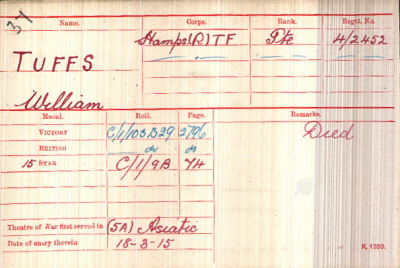 34
Name. Corps. Rank. Regtl. No.
TUFFS Hamps(R)TF Pte 4/2452
William
Medal. Roll. Page. Remarks.
VICTORY C/1/103B29 2796 Died
BRITISH do do
15 STAR C/1/9B 74
Theatre of War first served in (5A) Asiatic
Date of entry therein 18-3-15
K. 1380.